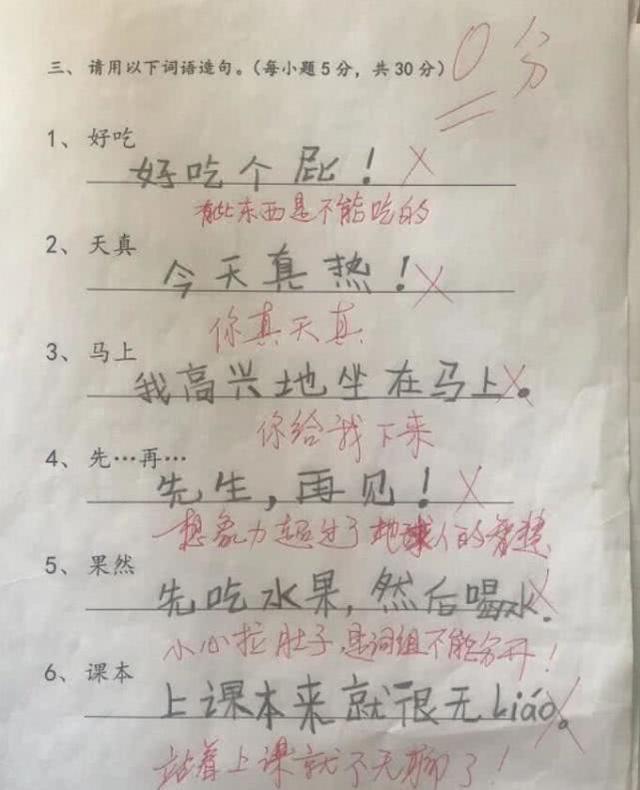 三、请用以下词语造句。(每小题5分，共30分) 0分
1、好吃
好吃个屁！
有些东西是不能吃的
2、天真
今天真热！
你真天真
3、马上
我高兴地坐在马上。
你给我下来
4、先…再…
先生，再见！
想象力超过了地球人的智慧
5、果然
先吃水果，然后喝水.
小心拉肚子，是词组不能分开！
6、课本
上课本来就很无Liáo。
站着上课就不无聊了！